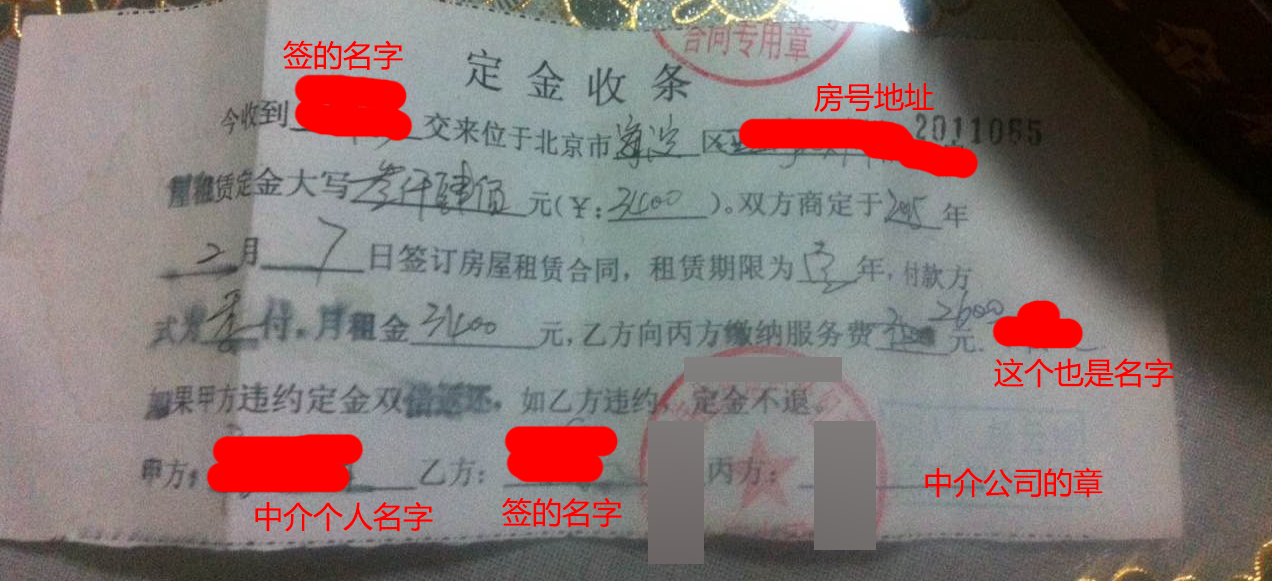 合同专用章
签的名字
定金收条
房号地址
今收到 交来位于北京市海淀区 2011065
屋租赁定金大写叁仟肆佰元(¥:3400)。双方商定于2015年
2月7日签订房屋租赁合同,租赁期限为 年,付款方
式为季付。月租金3400元,乙方向丙方缴纳服务费 2600元.
这个也是名字
如果甲方违约定金双倍返还,如乙方违约,定金不退。
甲方: 乙方: 丙方:
中介公司的章
中介个人名字
签的名字